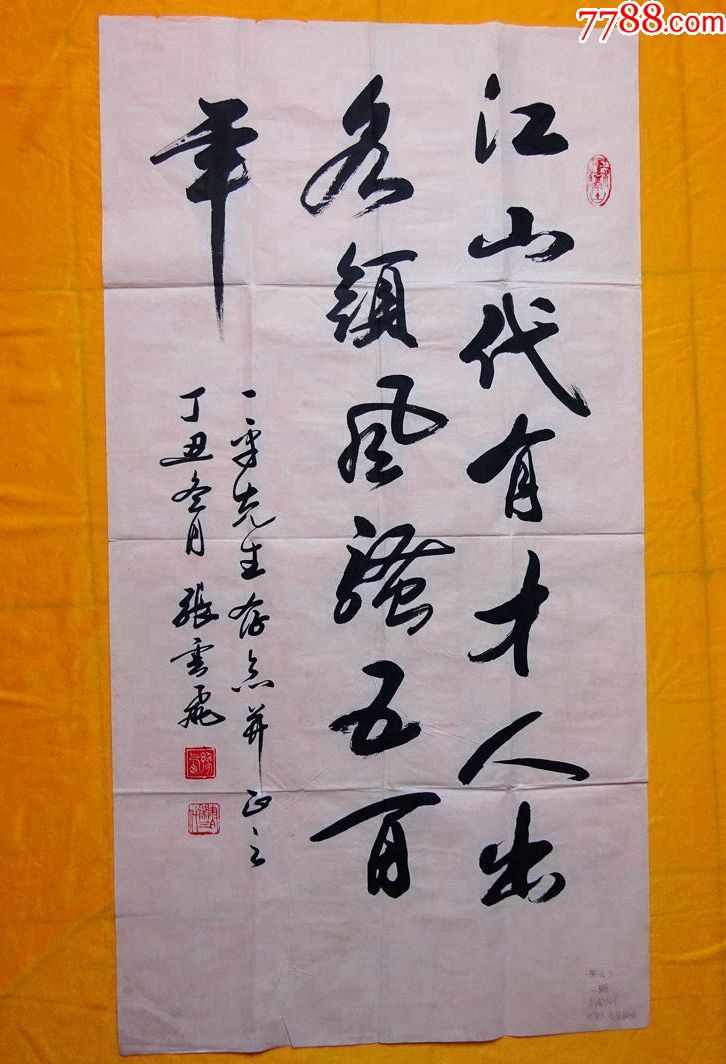 7788.com
江山代有才人出
各領风骚五百
年
一平先生存念并正之
丁丑冬月 張雲飛